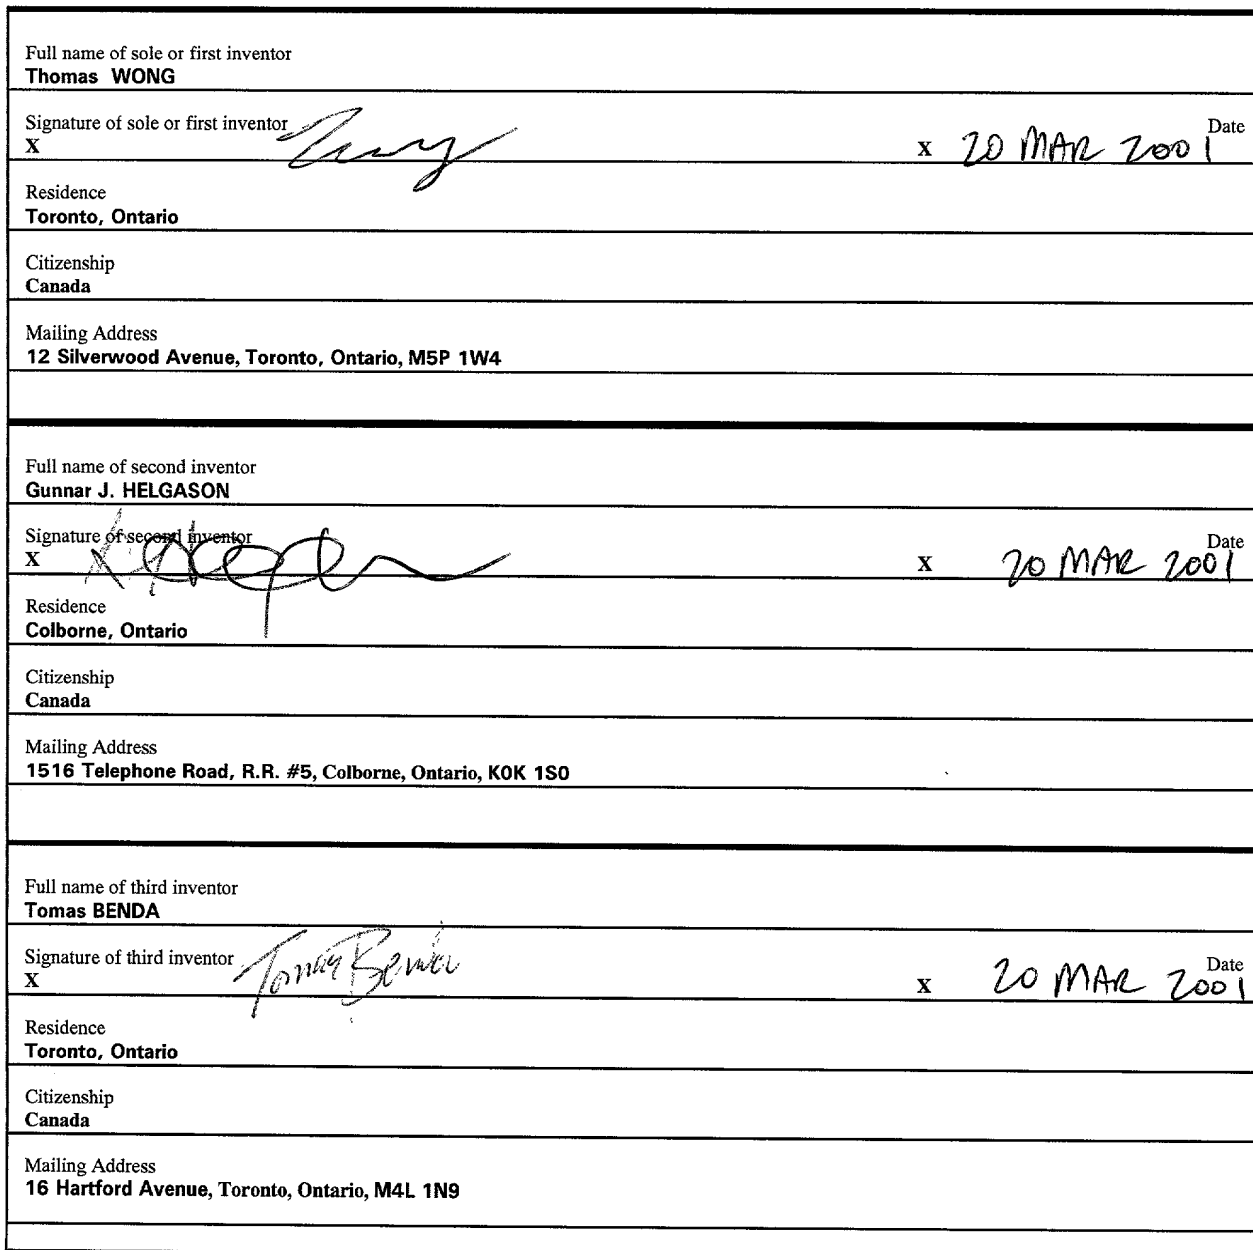 Full name of sole or first inventor
Thomas WONG
Signature of sole or first inventor
Date
X
x 20 MAR 2001
Residence
Toronto, Ontario
Citizenship
Canada
Mailing Address
12 Silverwood Avenue, Toronto, Ontario, M5P 1W4
Full name of second inventor
Gunnar J. HELGASON
Signature of second inventor
Date
X
x 20 MAR 2001
Residence
Colborne, Ontario
Citizenship
Canada
Mailing Address
1516 Telephone Road, R.R. #5, Colborne, Ontario, K0K 1S0
Full name of third inventor
Tomas BENDA
Signature of third inventor Tomas Benda
Date
X
x 20 MAR 2001
Residence
Toronto, Ontario
Citizenship
Canada
Mailing Address
16 Hartford Avenue, Toronto, Ontario, M4L 1N9